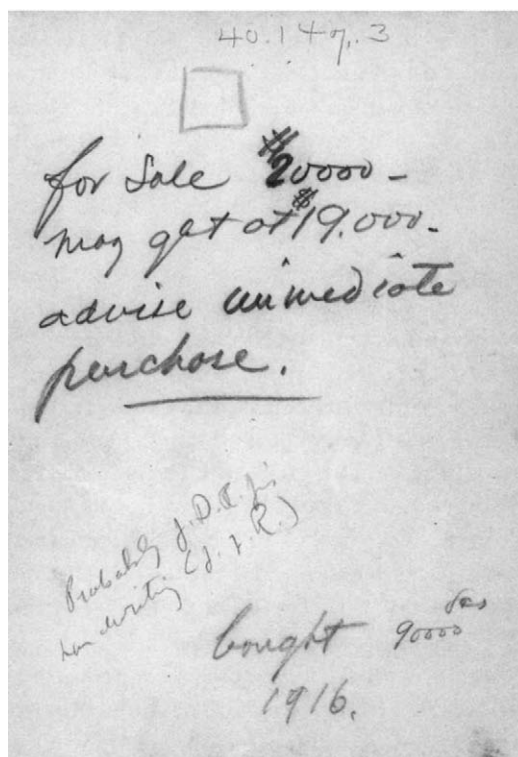 40.147.3
for sale $20000-
may get at $19.000-
advise immediate
purchase.
Probably J.D.R. jr's
handwriting (J.F.R.)
bought 90000 frs
1916.